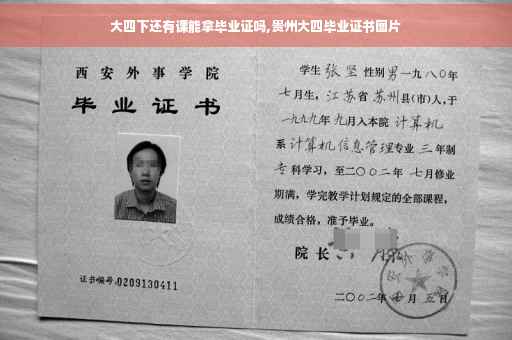 大四下还有课能拿毕业证吗,贵州大四毕业证书图片
西安外事学院
毕业证书
证书编号:0209130411
学生 张坚 性别男一九八〇年
七月生，江苏省 苏州县(市)人，于
一九九九年 九月入本院 计算机
系 计算机信息管理专业 三 年制
专科学习，至二〇〇二年 七月修业
期满，学完教学计划规定的全部课程，
成绩合格，准予毕业。
院 长
二〇〇二年 月 五日